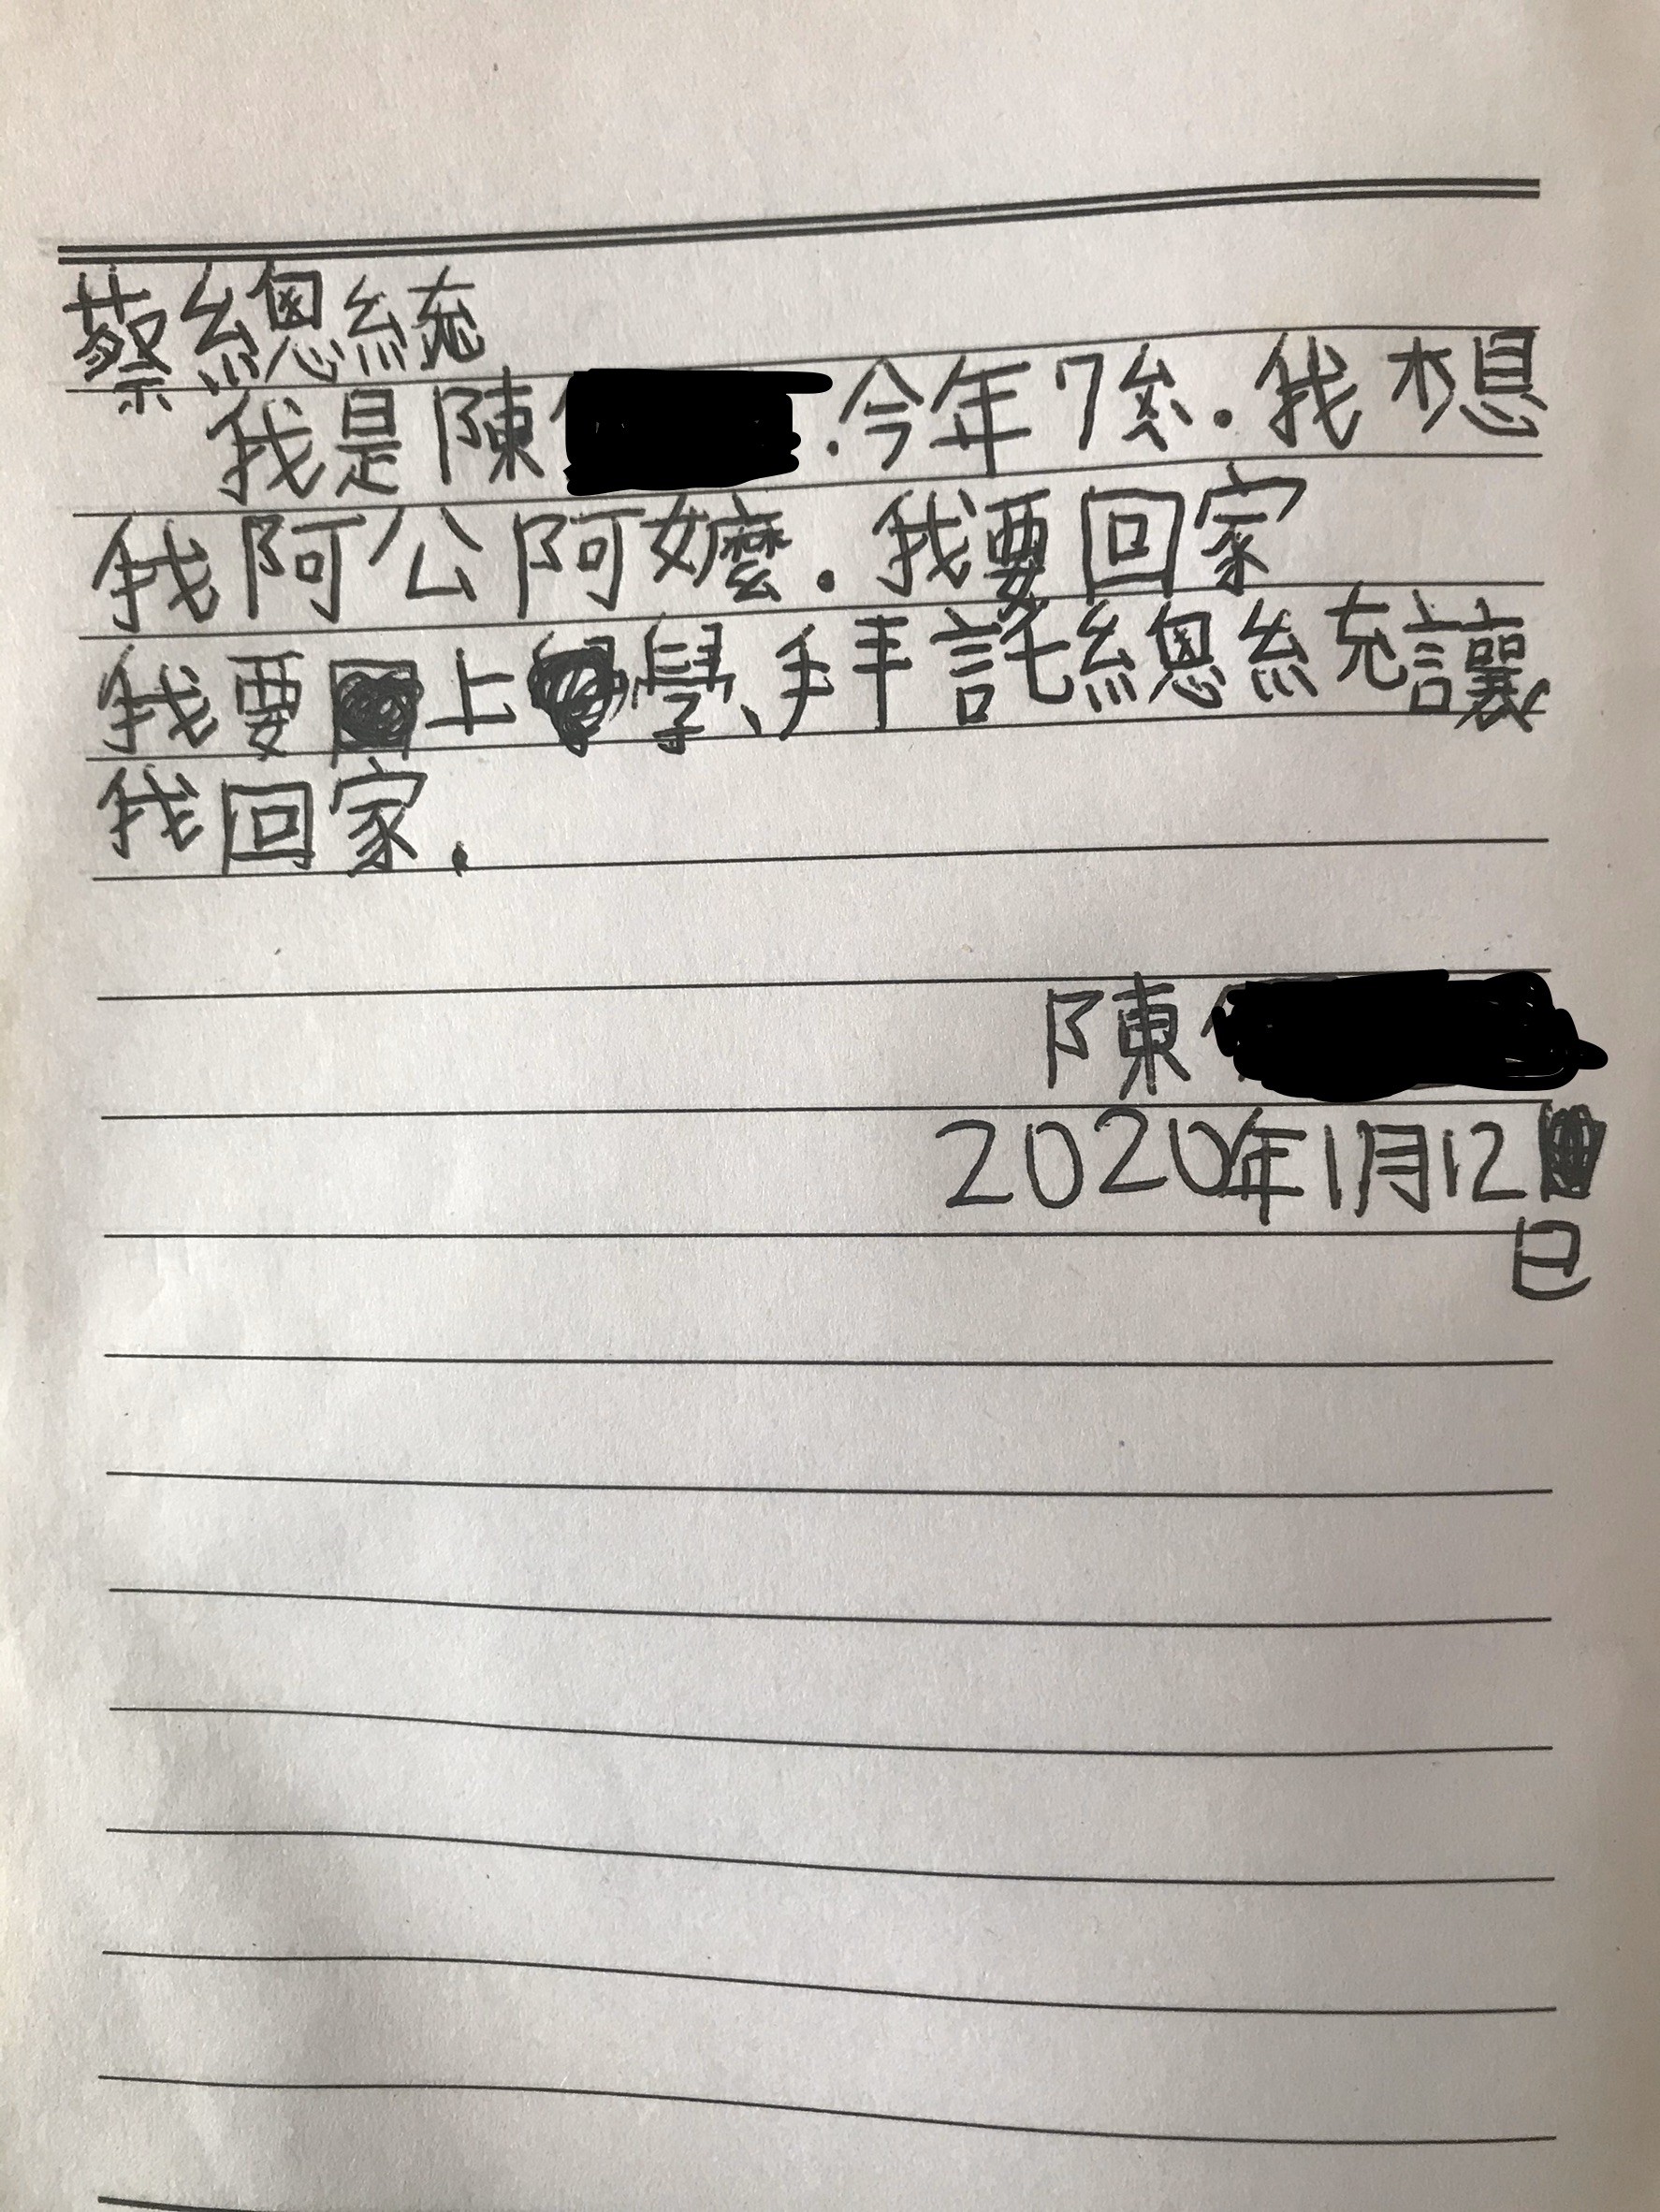 蔡總統
我是陳.今年7歲.我想
我阿公阿嬤.我要回家
我要上學、拜託總統讓
我回家.
陳
2020年1月12
日